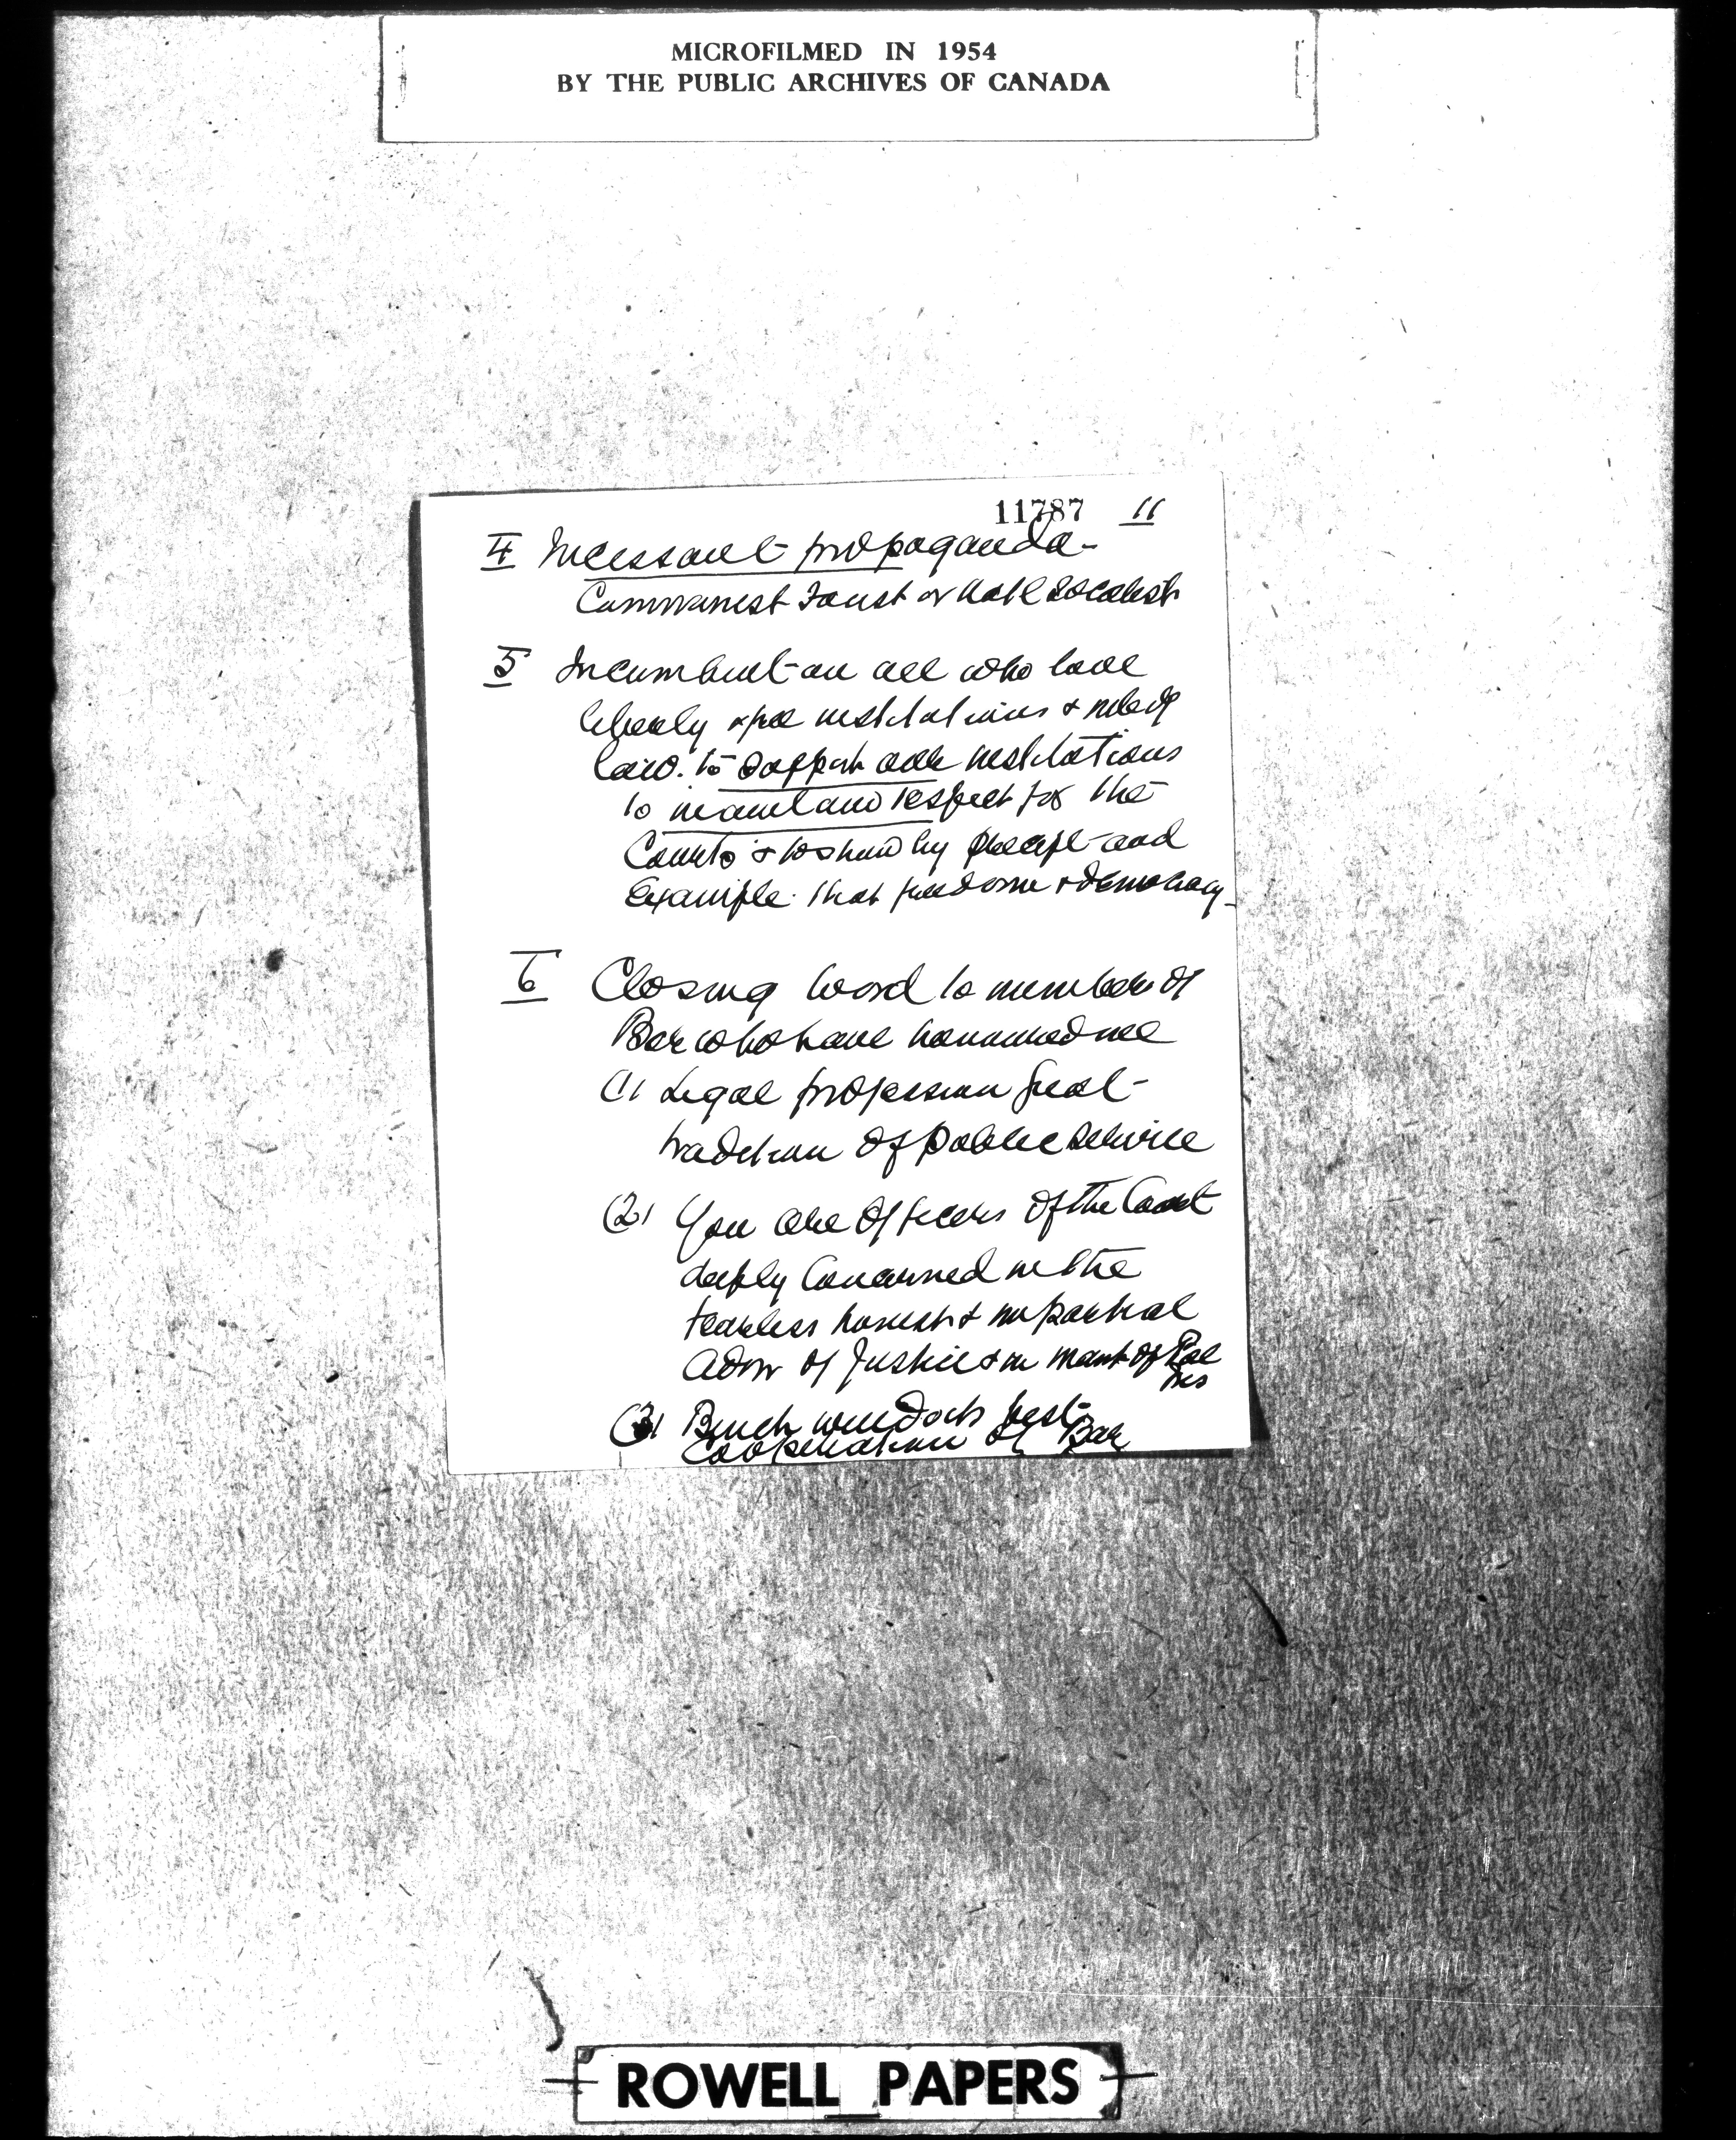 MICROFILMED IN 1954
BY THE PUBLIC ARCHIVES OF CANADA
11787 11
4 Incessant propaganda-
Communist Facist or Natl Socalist
5 Incumbent on all who love
liberty & free institutions & rule of
law. to support our institutions
to maintain respect for the
Courts & to show by precept and
Example. that freedom & democracy-
6 Closing word to members of
Bar who have honoured me
(1) Legal profession great
tradition of public service
(2) You are officers of the Court
deeply Concerned in the
fearless honest & impartial
Admr of Justice & in maint of
(3) Bench will do its best-
Cooperation of Bar
ROWELL PAPERS